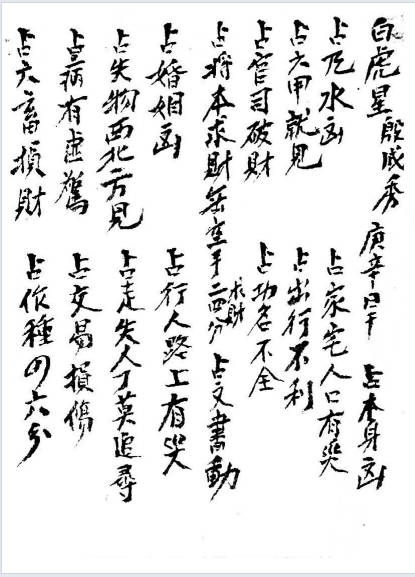 白虎星殷成秀 庚辛日干 占本身凶
占风水凶 占家宅人口有災
占六甲就見 占出行不利
占官司破財 占功名不全
占将本求財無空手求財二四分 占文書動
占婚姻凶 占行人路上有災
占失物西北方見 占走失人丁莫追尋
占病有虛驚 占交易損傷
占六畜損財 占作種四六分